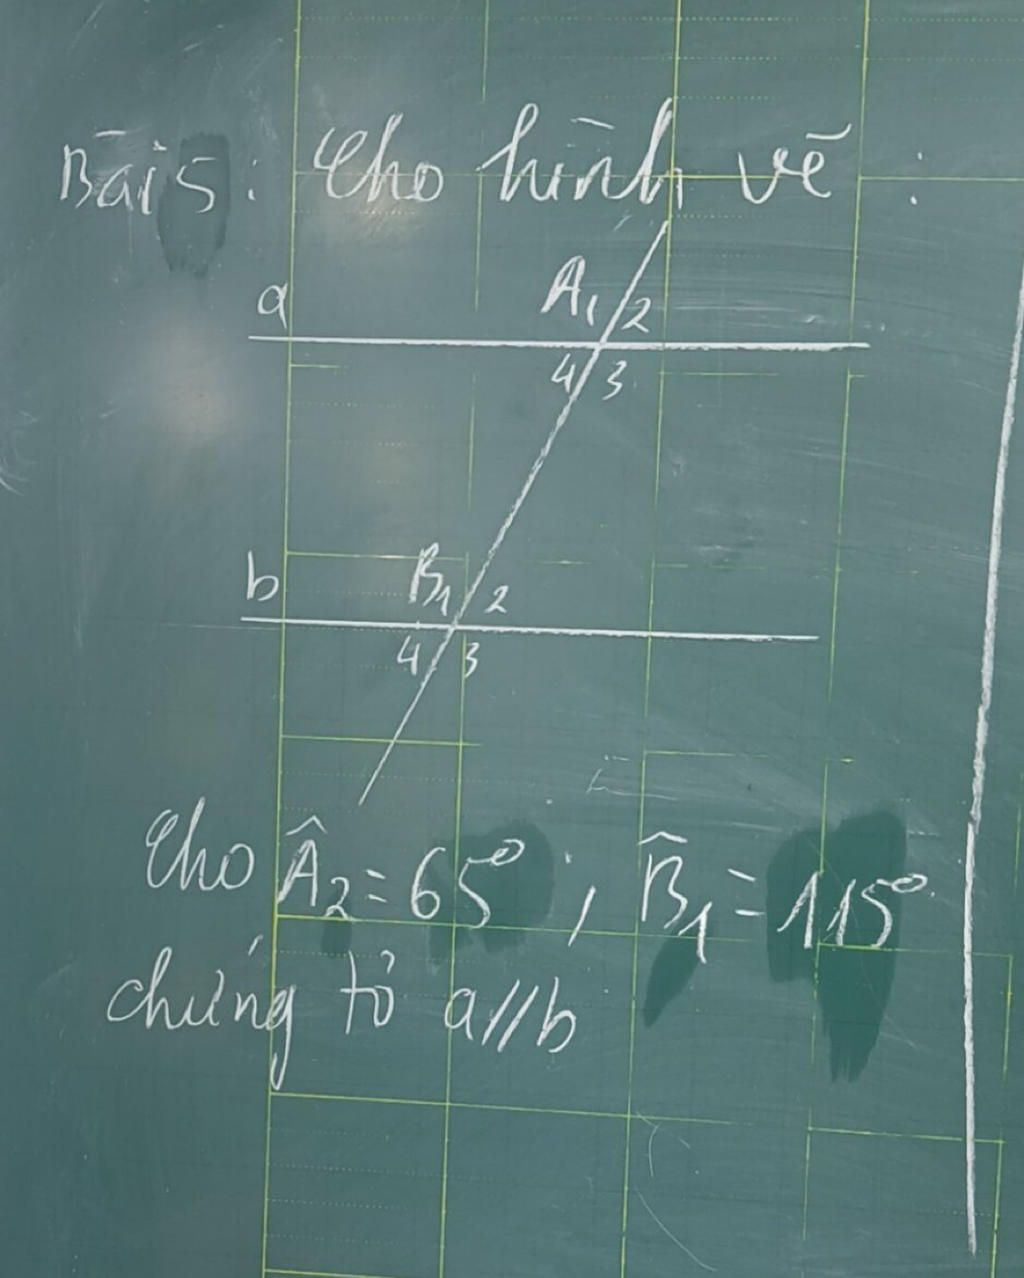 Bài 5: Cho hình vẽ:
a A 1 2
4 3
b B 1 2
4 3
Cho Â₂ = 65°; B̂₁ = 115°.
chứng tỏ a//b